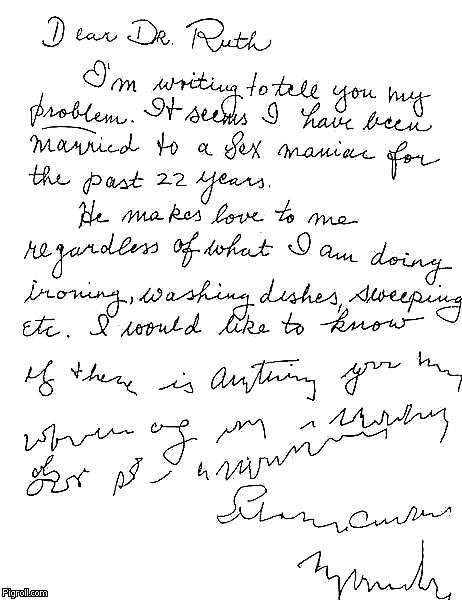 Dear Dr. Ruth
I'm writing to tell you my
problem. It seems I have been
married to a sex maniac for
the past 22 years.
He makes love to me
regardless of what I am doing
ironing, washing dishes, sweeping
etc. I would like to know
if there is anything you
Figroll.com